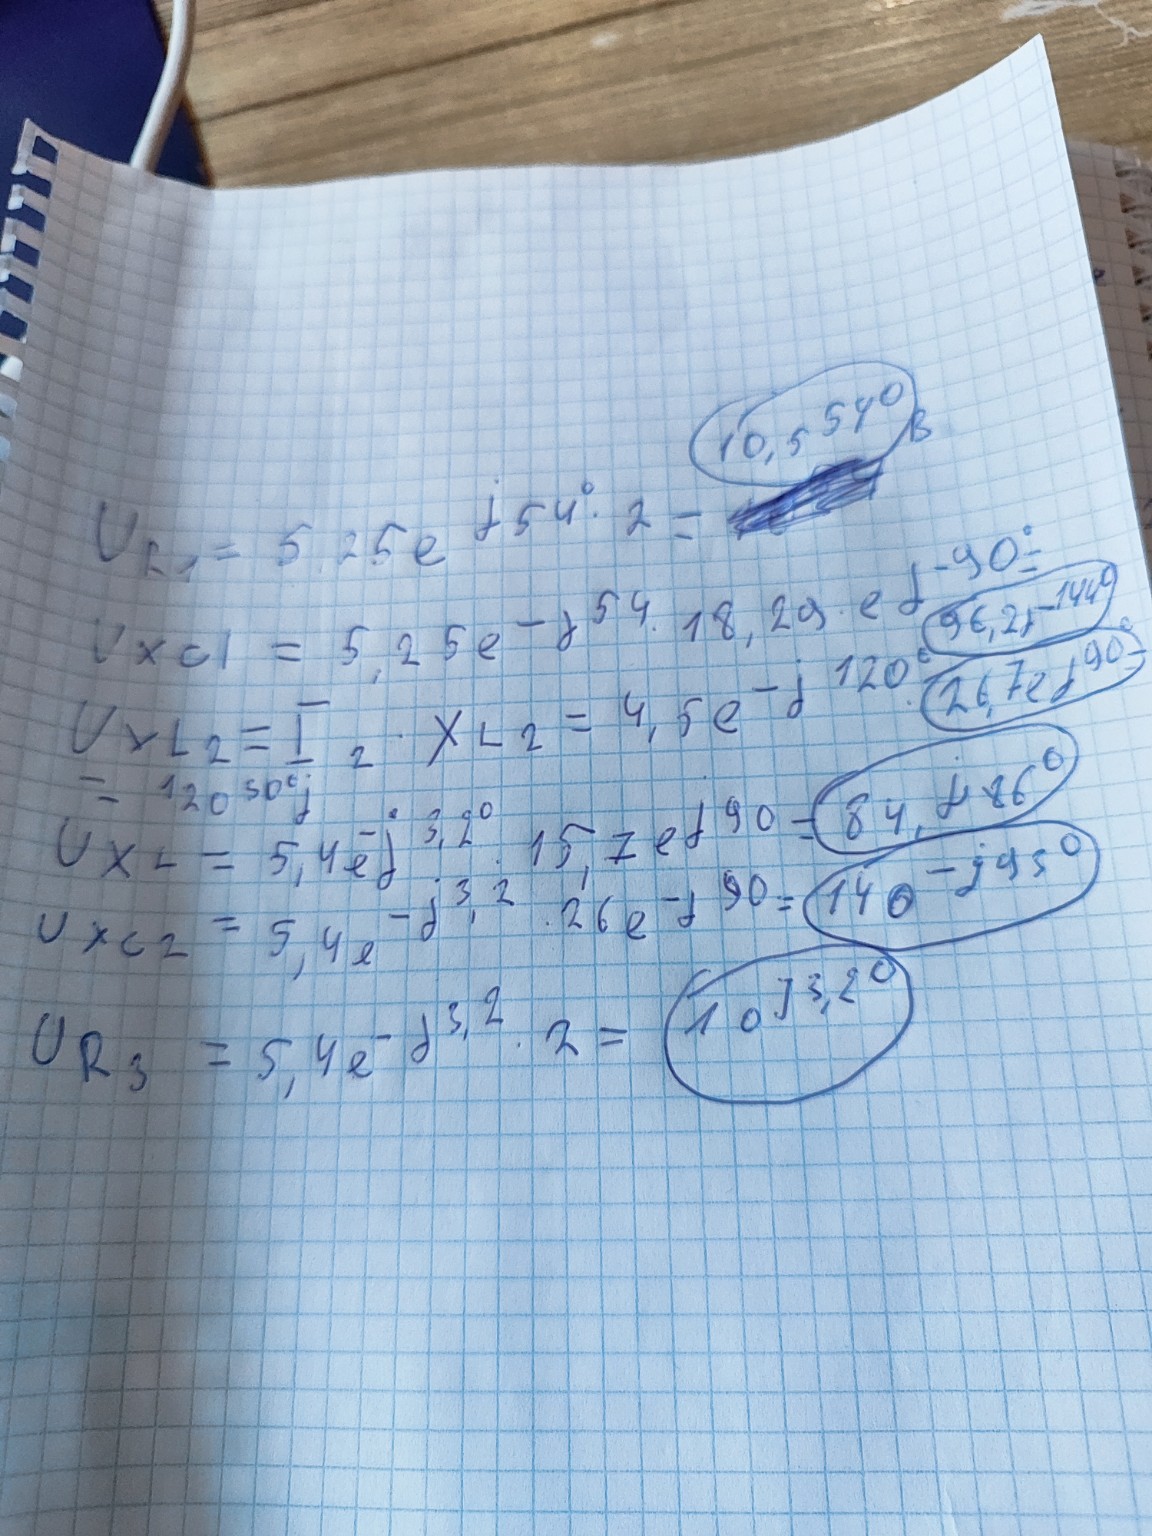 U R1 = 5,25e j54° · 2 = 10,5 54° В
U xc1 = 5,25e -j54 · 18,29 · e j-90° = 96,2j -144°
U xL2 = I 2 · XL2 = 4,5e -j120° · 26,7e j90 =
= 120 30°j
U XL = 5,4e -j3,2° · 15,7e j90 = 84, j 86°
U xc2 = 5,4e -j3,2 · 26e -j90 = 140 -j93°
U R3 = 5,4e -j3,2 · 2 = 10 j3,2°